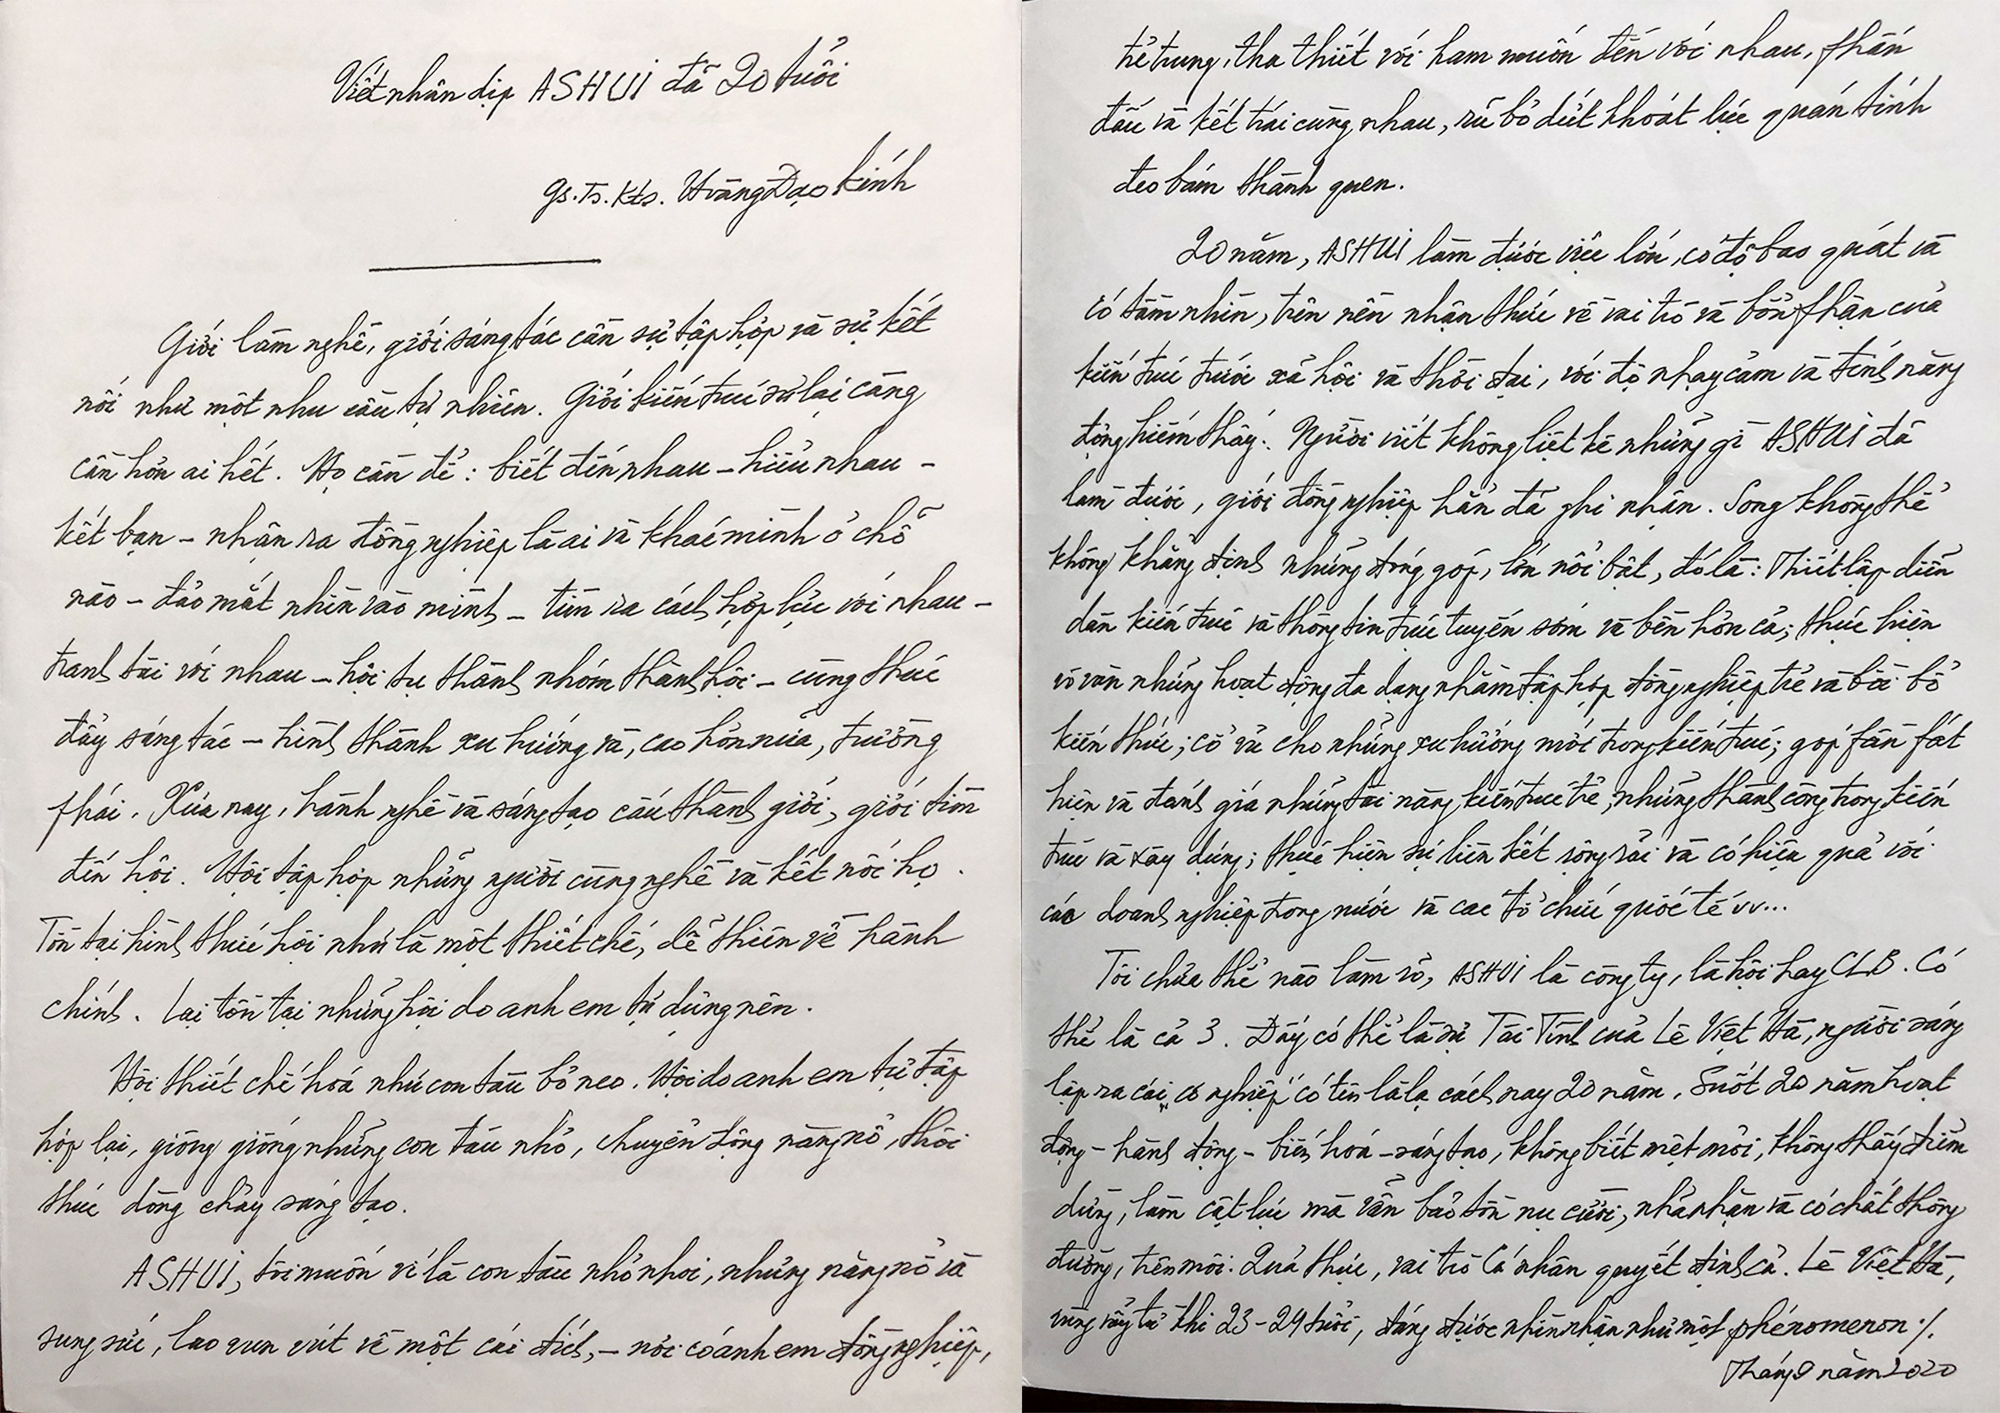 Viết nhân dịp ASHUI đã 20 tuổi
gs.Ts.Kts. Hoàng Đạo Kính
Giới làm nghề, giới sáng tác cần sự tập hợp và sự kết
nối như một nhu cầu tự nhiên. Giới kiến trúc sư lại càng
cần hơn ai hết. Họ cần để: biết đến nhau – hiểu nhau –
kết bạn – nhận ra đồng nghiệp là ai và khác mình ở chỗ
nào – đảo mắt nhìn vào mình – tìm ra cách hợp lực với nhau –
tranh tài với nhau – hội tụ thành nhóm thành hội – cùng thúc
đẩy sáng tác – hình thành xu hướng và, cao hơn nữa, trường
phái. Xưa nay, hành nghề và sáng tạo cấu thành giới, giới tìm
đến hội. Hội tập hợp những người cùng nghề và kết nối họ.
Tồn tại hình thức hội như là một thiết chế, dễ thiên về hành
chính. Lại tồn tại những hội do anh em tự dựng nên.
Hội thiết chế hoá như con tàu bỏ neo. Hội do anh em tự tập
hợp lại, giống giống những con tàu nhỏ, chuyển động năng nổ, thôi
thúc dòng chảy sáng tạo.
ASHUI, tôi muốn ví là con tàu nhỏ nhoi, nhưng năng nổ và
sung sức, lao vun vút về một cái đích, – nơi có anh em đồng nghiệp,
trẻ trung, tha thiết với ham muốn đến với nhau, phấn
đấu và kết trái cùng nhau, rũ bỏ dứt khoát lực quán tính
đeo bám thành quen.
20 năm, ASHUI làm được việc lớn, có độ bao quát và
có tầm nhìn, trên nền nhận thức về vai trò và bổn phận của
kiến trúc trước xã hội và thời đại, với độ nhạy cảm và tính năng
động hiếm thấy. Người viết không liệt kê những gì ASHUI đã
làm được, giới đồng nghiệp hẳn đã ghi nhận. Song không thể
không khẳng định những đóng góp, lớn nổi bật, đó là: Thiết lập diễn
đàn kiến trúc và thông tin trực tuyến sớm và bền hơn cả; thực hiện
vô vàn những hoạt động đa dạng nhằm tập hợp đồng nghiệp trẻ và bồi bổ
kiến thức; cổ vũ cho những xu hướng mới trong kiến trúc; góp fần fát
hiện và đánh giá những tài năng kiến trúc trẻ, những thành công trong kiến
trúc và xây dựng; thực hiện sự liên kết rộng rãi và có hiệu quả với
các doanh nghiệp trong nước và các tổ chức quốc tế v.v...
Tôi chưa thể nào làm rõ, ASHUI là công ty, là hội hay CLB. Có
thể là cả 3. Đấy có thể là sự Tài Tình của Lê Việt Hà, người sáng
lập ra cái "cơ nghiệp" có tên là lạ cách nay 20 năm. Suốt 20 năm hoạt
động – hành động – biến hoá – sáng tạo, không biết mệt mỏi, không thấy điểm
dừng, làm cật lực mà vẫn bảo tồn nụ cười, nhã nhặn và có chất thông
đường, trên môi. Quả thực, vai trò Cá nhân quyết định cả. Lê Việt Hà,
vùng vẫy từ khi 23–24 tuổi, đáng được nhìn nhận như một phénomenon ./.
Tháng 9 năm 2020